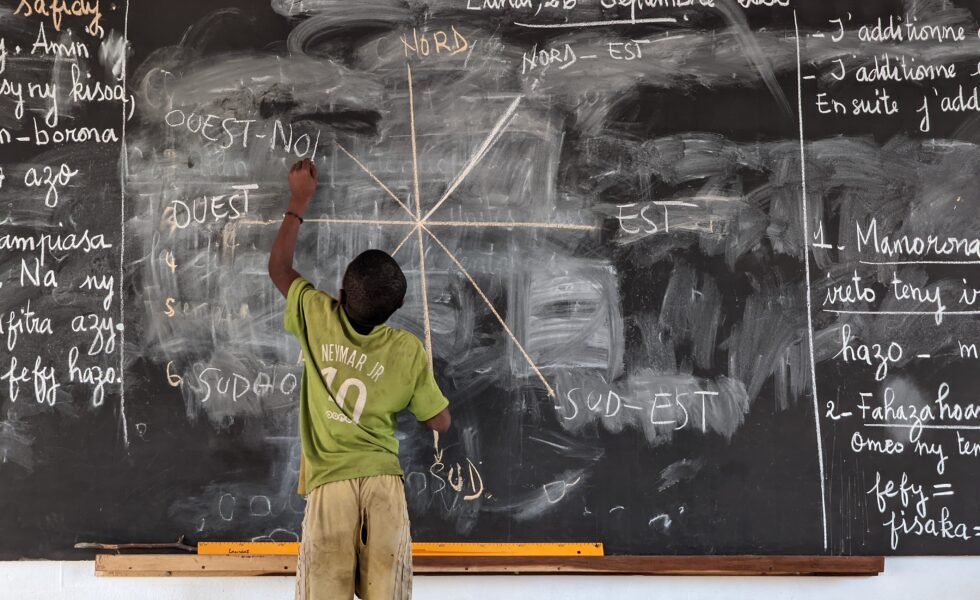 safidy.
Amin
ny kisoa,
n-borona
azo
ampiasa
Na ny
fitra azy.
fefy hazo.
Lundi, 26 Septembre
NORD
NORD-EST
OUEST-NO
OUEST
EST
4
5
6
SUDAO
SUD-EST
SUD
NEYMAR JR
10
- J'additionne
- J'additionne
Ensuite j'add
1. Mamorona
ireto teny
hazo - m
2- Fahazahoa
omeo ny ten
fefy =
fisaka=